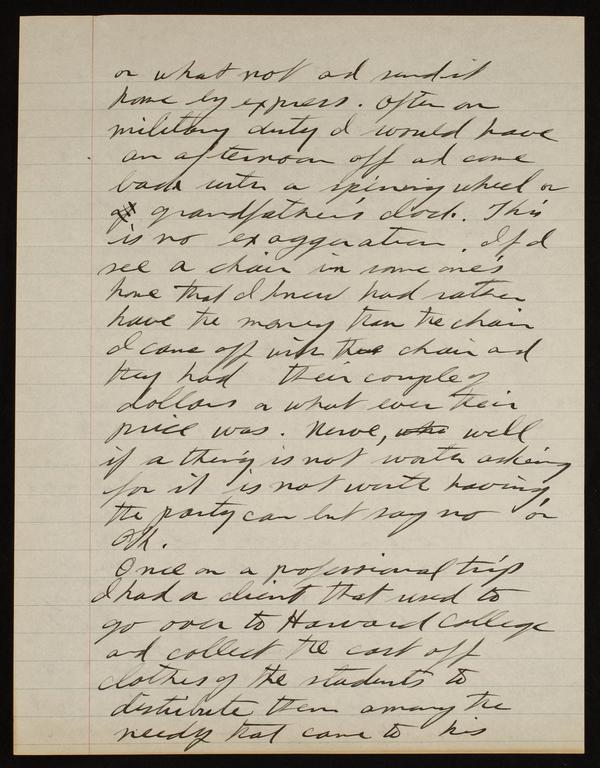 or what not ad send it
home by express. Often on
military duty I would have
an afternoon off ad come
back with a spinning wheel or
grandfather's clock. This
is no exaggeration. If I
see a chair in some one's
home that I knew had rather
have the money than the chair
I came off with the chair ad
they had their couple of
dollars or what ever their
price was. Nerve, well
if a thing is not worth asking
for it is not worth having
the party can but say no or
Oh.
Once on a professional trip
I had a client that used to
go over to Harvard College
ad collect the cast off
clothes of the students to
distribute them among the
needy that came to his